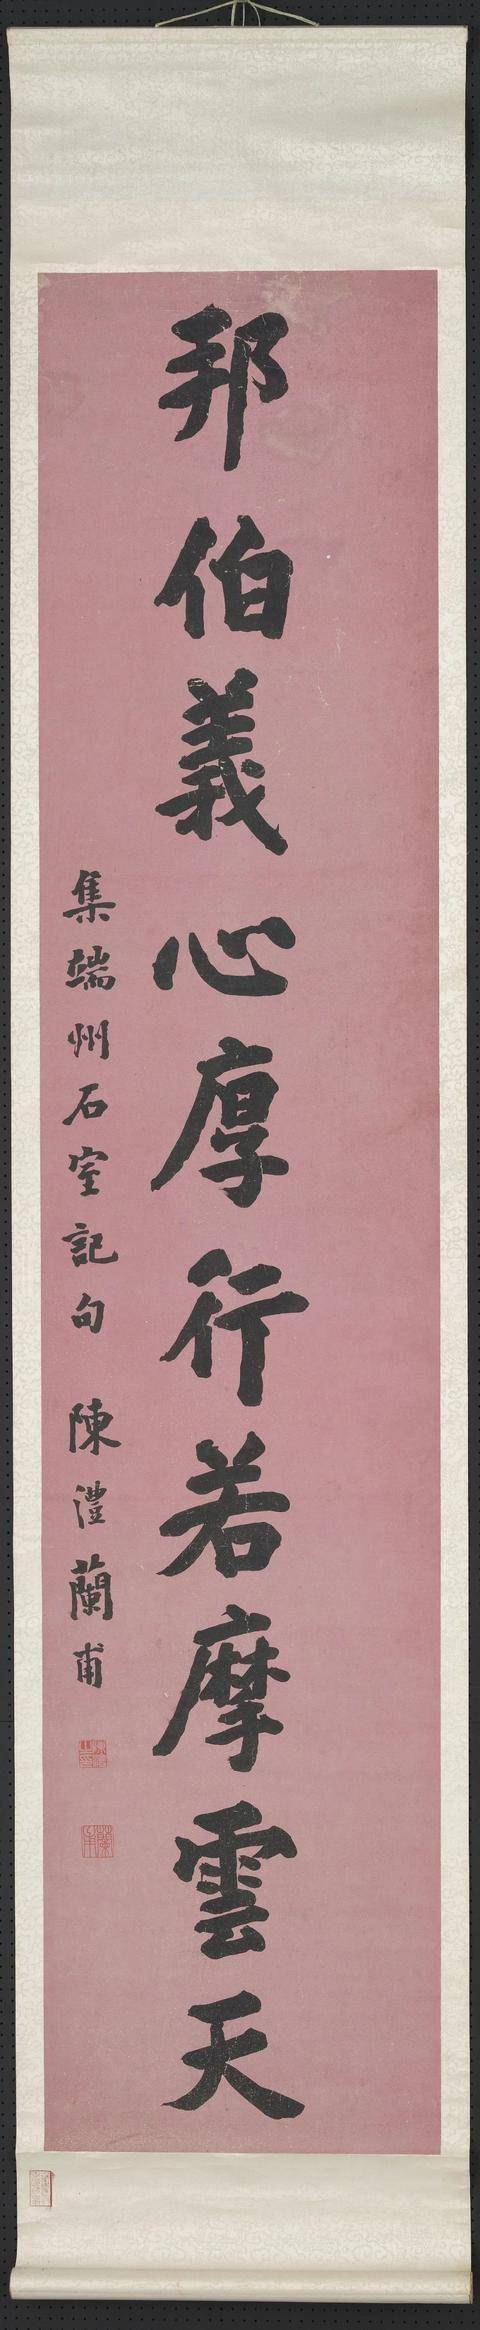 邦伯義心厚行若摩雲天
集端州石室記句 陳澧蘭甫